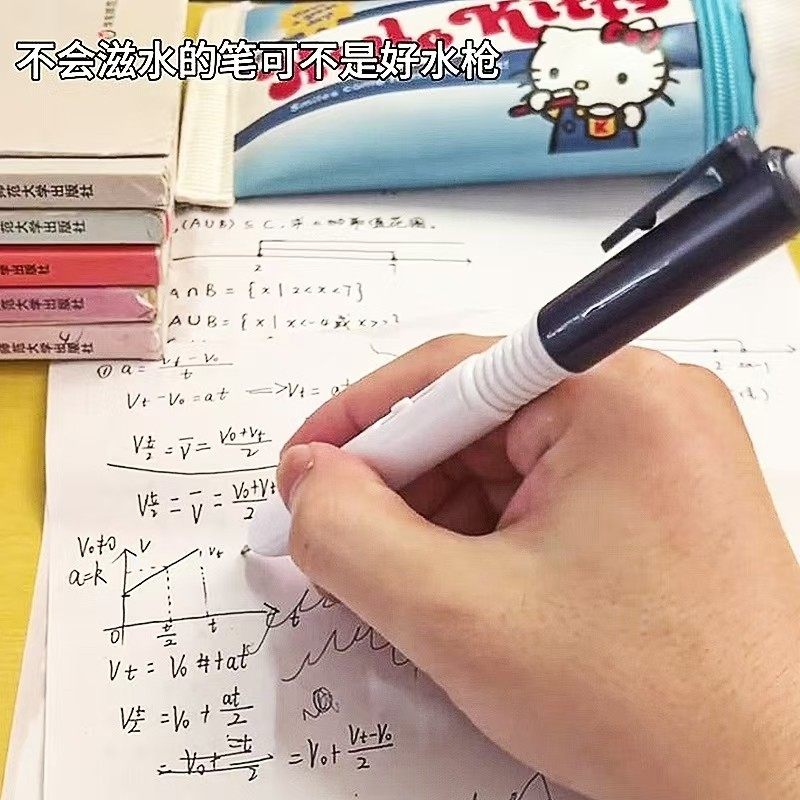 不会滋水的笔可不是好水枪
Hello Kitty
范大学出版社
范大学出版社
学出版社
范大学出版社
师范大学出版社
(A∪B)⊆C,
2
7
A∩B = {x|2<x<7}
A∪B = {x|x<-4或x>
① a = (Vt-V₀)/t
Vt-V₀=at =>Vt= at
V t/2 = V̄ = (V₀+Vt)/2
V t/2 = V̄ = (V₀+Vt)/2
V₀≠0
a=k
V
Vt
0 t/2 t t
Vt = V₀ + at
V t/2 = V₀ + at/2
= V₀ + at/2 = V₀ + (Vt-V₀)/2